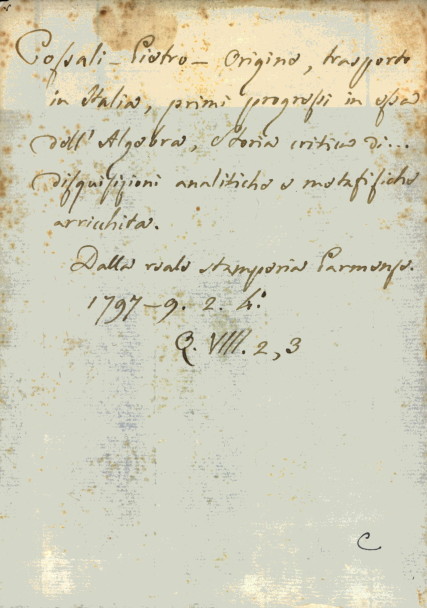 Cossali - Pietro - Origine, trasporto
in Italia, primi progressi in essa
dell' Algebra, Storia critica di...
disquisizioni analitiche e metafisiche
arricchita.
Dalla reale stamperia Parmense.
1797 - 9. 2. 4.°
Q. VIII. 2, 3
C